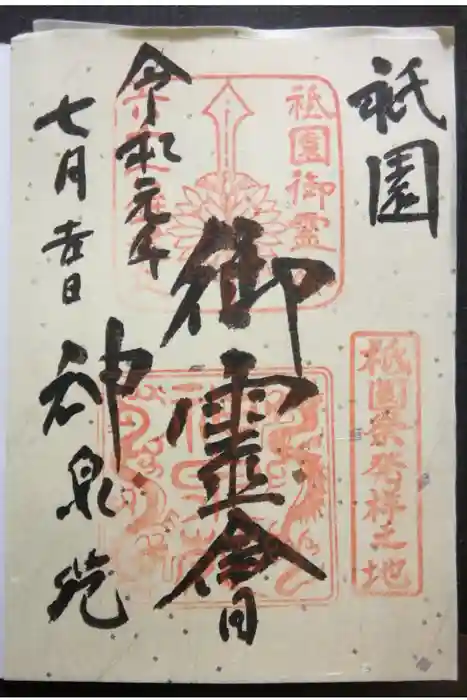 祇園
御靈會
令和元年
七月吉日
神泉苑
祇園御霊
祇園祭発祥之地